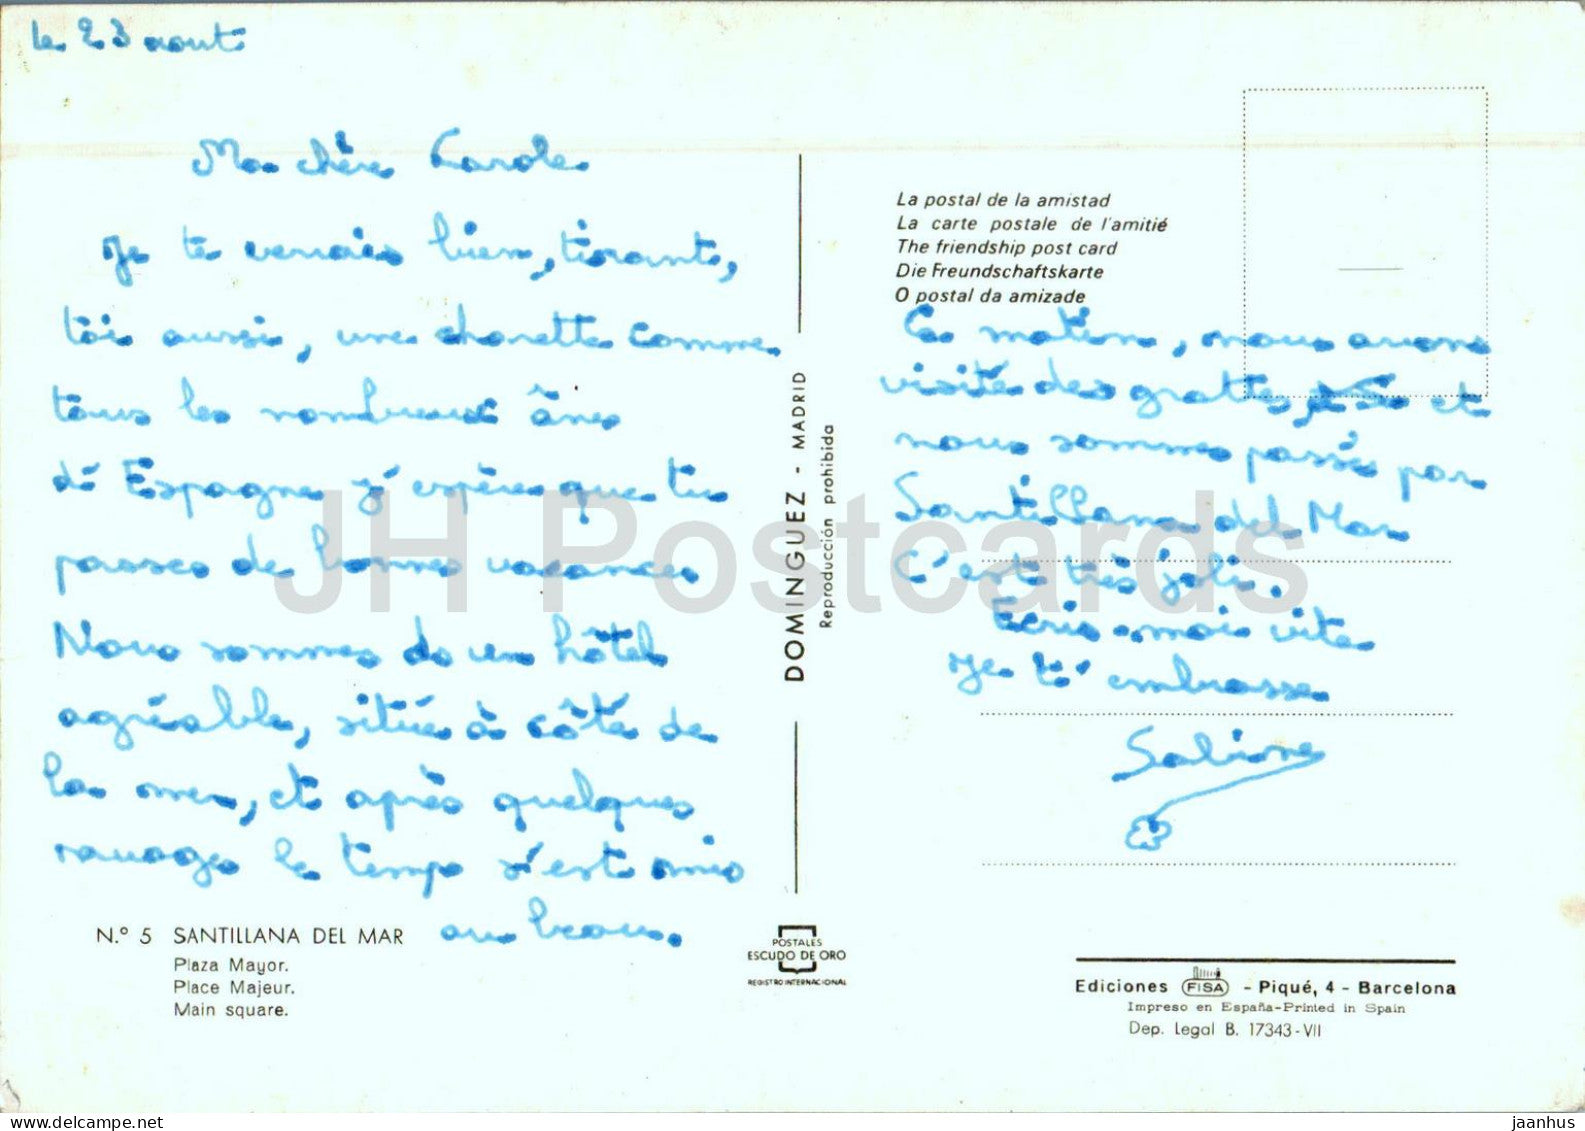 le 23 aout
Ma chère Carole
Je te verrais bien, tirant,
toi aussi, une charette comme
tous les nombreux ânes
d'Espagne j'espère que tu
passes de bonnes vacances
Nous sommes ds un hôtel
agréable, situé à côté de
la mer, et après quelques
nuages le temps s'est mis
au beau.
N.º 5 SANTILLANA DEL MAR
Plaza Mayor.
Place Majeur.
Main square.
DOMINGUEZ - MADRID
Reproducción prohibida
POSTALES
ESCUDO DE ORO
REGISTRO INTERNACIONAL
La postal de la amistad
La carte postale de l'amitié
The friendship post card
Die Freundschaftskarte
O postal da amizade
Ce matin, nous avons
visité des grottes, et
nous sommes passés par
Santillana del Mar
C'est très joli.
Ecris-moi vite
Je t'embrasse
Sabine
Ediciones FISA - Piqué, 4 - Barcelona
Impreso en España-Printed in Spain
Dep. Legal B. 17343-VII
JH Postcards
jaanhus
delcampe.net